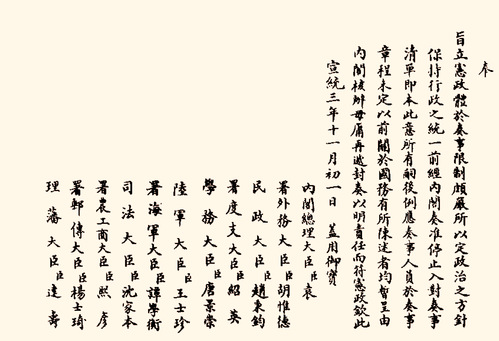 奉
旨立憲政體於奏事限制頗嚴所以定政治之方針
保持行政之統一前經內閣奏准停止入對奏事
清單即本此意所有嗣後例應奏事人員於奏事
章程未定以前關於國務有所陳述者均暫呈由
內閣核辦毋庸再遞封奏以明責任而符憲政欽此
宣統三年十一月初一日 蓋用御寶
內閣總理大臣臣袁
署外務大臣臣胡惟德
民政大臣臣趙秉鈞
署度支大臣臣紹英
學務大臣臣唐景崇
陸軍大臣臣王士珍
署海軍大臣臣譚學衡
司法大臣臣沈家本
署農工商大臣臣熙彥
署郵傳大臣臣楊士琦
理藩大臣臣達壽